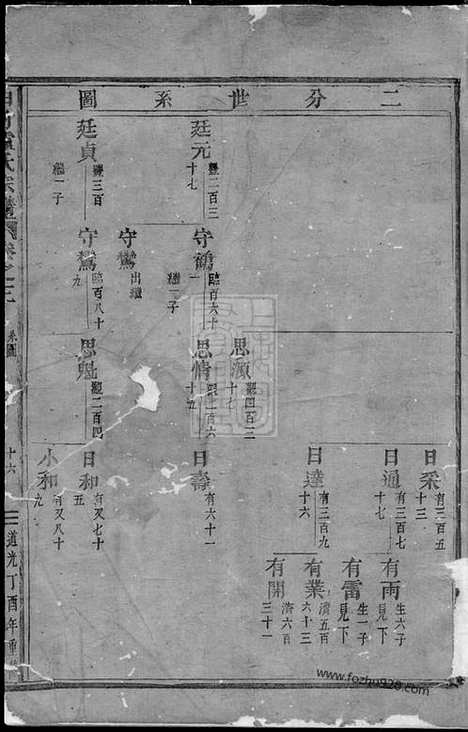 二分世系圖
廷元
豐二百三
十七
廷貞
豐三百
繼一子
守鶴
臨百六十
一
繼一子
守鸞
出繼
守鸞
臨百八十
九
思源
觀四百三
十七
思情
觀一百六
十五
思魁
觀二百四
日采
有三百五
十三
日通
有三百七
十七
日達
有三百九
十六
日壽
有六十一
日和
有又七十
五
小和
有又八十
九
有雨
生六子
見下
有雷
生一子
見下
有業
濟五百
六十三
有開
濟六百
三十一
氏宗譜
系圖
十六
道光丁酉年重
www.fozhu920.com